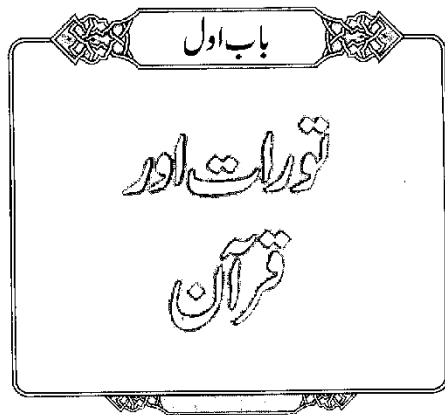 باب اول
تورات اور
قرآن